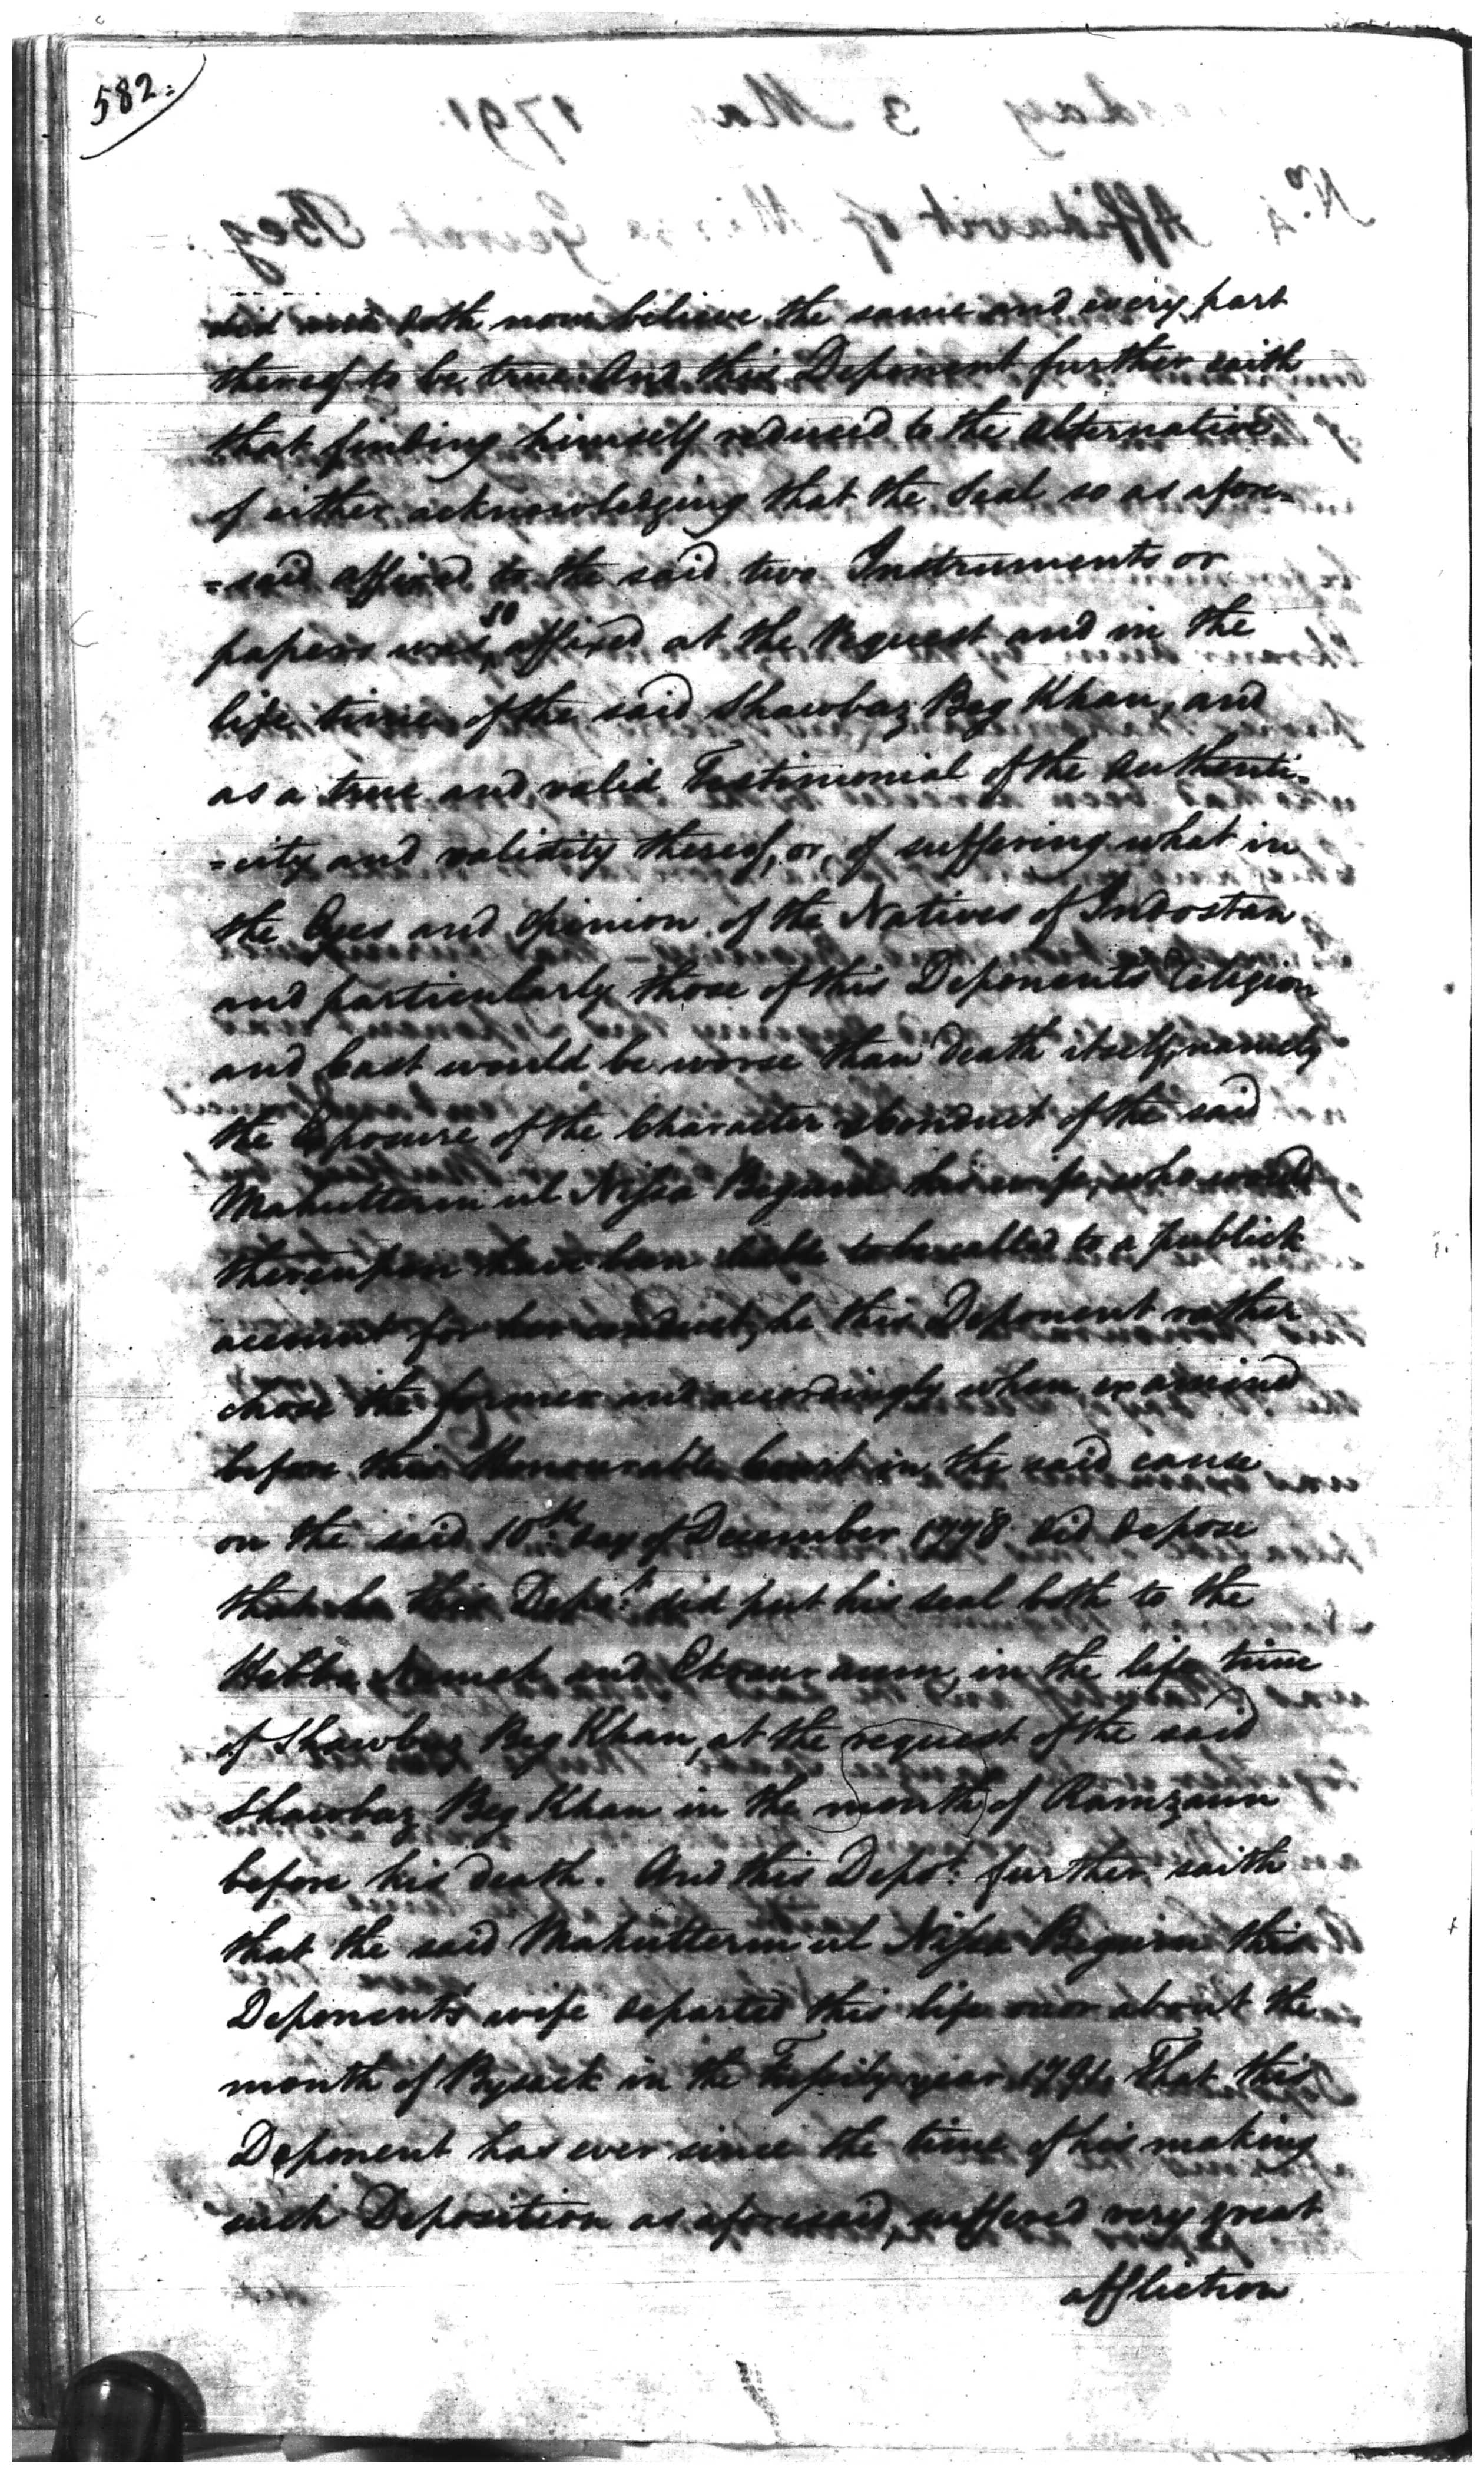 582.
did and doth now believe the same and every part
thereof to be true And this Deponent further saith
that finding himself reduced to the alternative
of either acknowledging that the Seal so as afore=
=said affixed to the said two Instruments or
papers was so affixed at the Request and in the
life time of the said Shawbaz Beg Khan, and
as a true and valid Testimonial of the Authenti=
=city and validity thereof, or, of suffering what in
the Eyes and Opinion of the Natives of Indostan
and particularly those of this Deponents Religion
and Cast would be worse than death itself, namely
the Exposure of the Character & Conduct of the said
Mahutterim ul Nissa Begum his wife, who would
thereupon have been liable to be called to a publick
account for her conduct, he this Deponent rather
chose the former and accordingly when examined
before this Honourable Court in the said cause
on the said 10th day of December 1778 did depose
that he this Depot. did put his seal both to the
Hebba Nameh and in the life time
of Shawbaz Beg Khan, at the request of the said
Shawbaz Beg Khan in the month of Ramzaun
before his death. And this Depot. further saith
that the said Mahutterim ul Nissa Begum this
Deponents wife departed this life on or about the
month of Bysack in the year That this
Deponent has ever since the time of his making
such Deposition as aforesaid, suffered very great
affliction